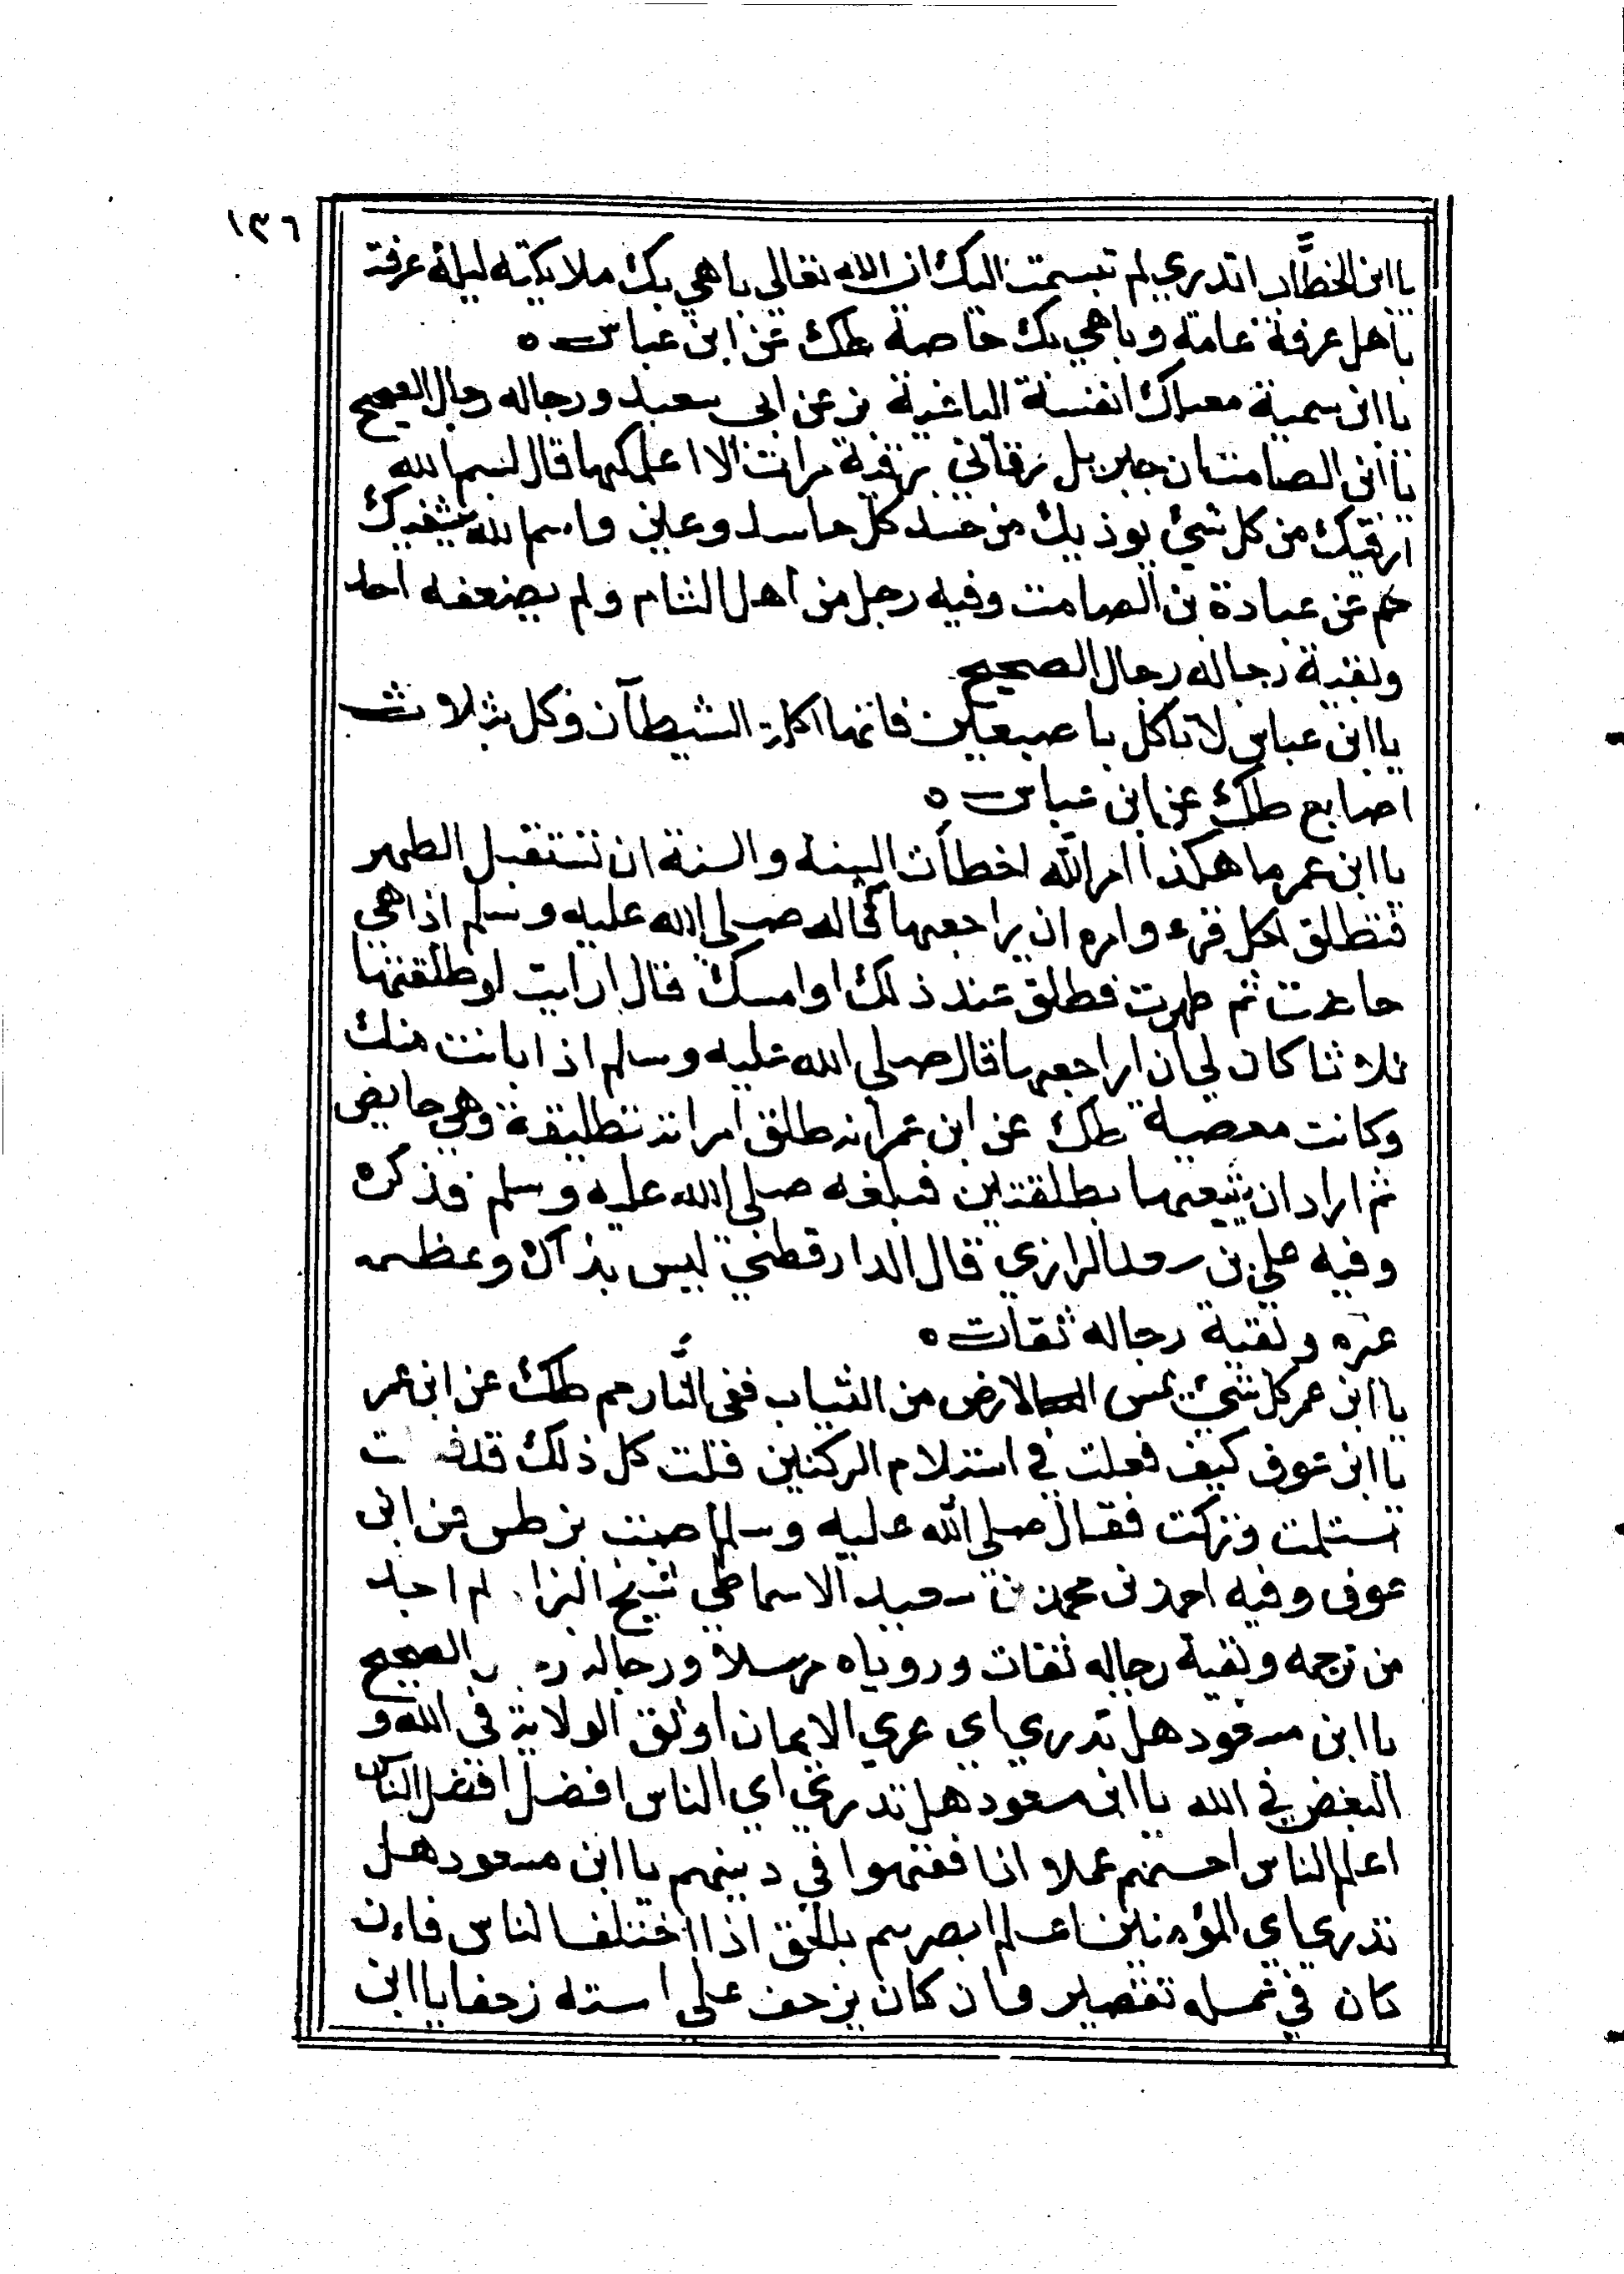 ١٣٦
يا ابن الخطاب اتدري لم تبسمت اليك ان الله تعالى باهي بك ملايكته ليلة عرفة
باهل عرفة عامة وباهي بك خاصة طك عن ابن عباس ه
يا ابن سمية تقتلك الفئة الباغية بز عن ابي سعيد ورجاله رجال الصحيح
يا ابن الصامت ان جبريل رقاني برقية برات الا اعلمكها قال بسم الله
ارقيك من كل شيء يوذيك من حسد كل حاسد وعين واسم الله يشفيك
حم عن عبادة بن الصامت وفيه رجل من اهل الشام ولم يضعفه احد
وبقية رجاله رجال الصحيح
يا ابن عباس لا تاكل باصبعين فانها اكلة الشيطان وكل بثلاث
اصابع طك عن ابن عباس ه
يا ابن عمر ما هكذا امر الله اخطات السنة والسنة ان تستقبل الطهر
فتطلق لكل قرء وامره ان يراجعها قال صلى الله عليه وسلم اذا هي
حاضت ثم طهرت فطلق عند ذلك او امسك قال ارايت لو طلقتها
ثلاثا كان لي ان اراجعها قال صلى الله عليه وسلم اذا بانت منك
وكانت معصية طك عن ابن عمر انه طلق امراته تطليقة وهي حايض
ثم اراد ان يتبعها بطلقتين فبلغه صلى الله عليه وسلم فذكره
وفيه علي بن سعد الرازي قال الدارقطني ليس بذاك وعظمه
غيره وبقية رجاله ثقات ه
يا ابن عمر كل شيء يمس الارض من الثياب ففي النار حم طك عن ابن عمر
يا ابن عوف كيف فعلت في استلام الركنين قلت كل ذلك قد
استلمت وتركت فقال صلى الله عليه وسلم اصبت بز طس عن ابن
عوف وفيه احمد بن محمد بن سعيد الاسماطي شيخ البزار لم اجد
من ترجمه وبقية رجاله ثقات وروياه مرسلا ورجاله الصحيح
يا ابن مسعود هل تدري اي عري الايمان اوثق الولاية في الله و
البغض في الله يا ابن مسعود هل تدري اي الناس افضل افضل الناس
اعلم الناس احسنهم عملا اذا فقهوا في دينهم يا ابن مسعود هل
تدري اي المؤمنين اعلم ابصرهم بالحق اذا اختلف الناس فان
كان في عمله تقصير وان كان يزحف على استه زحفا يا ابن